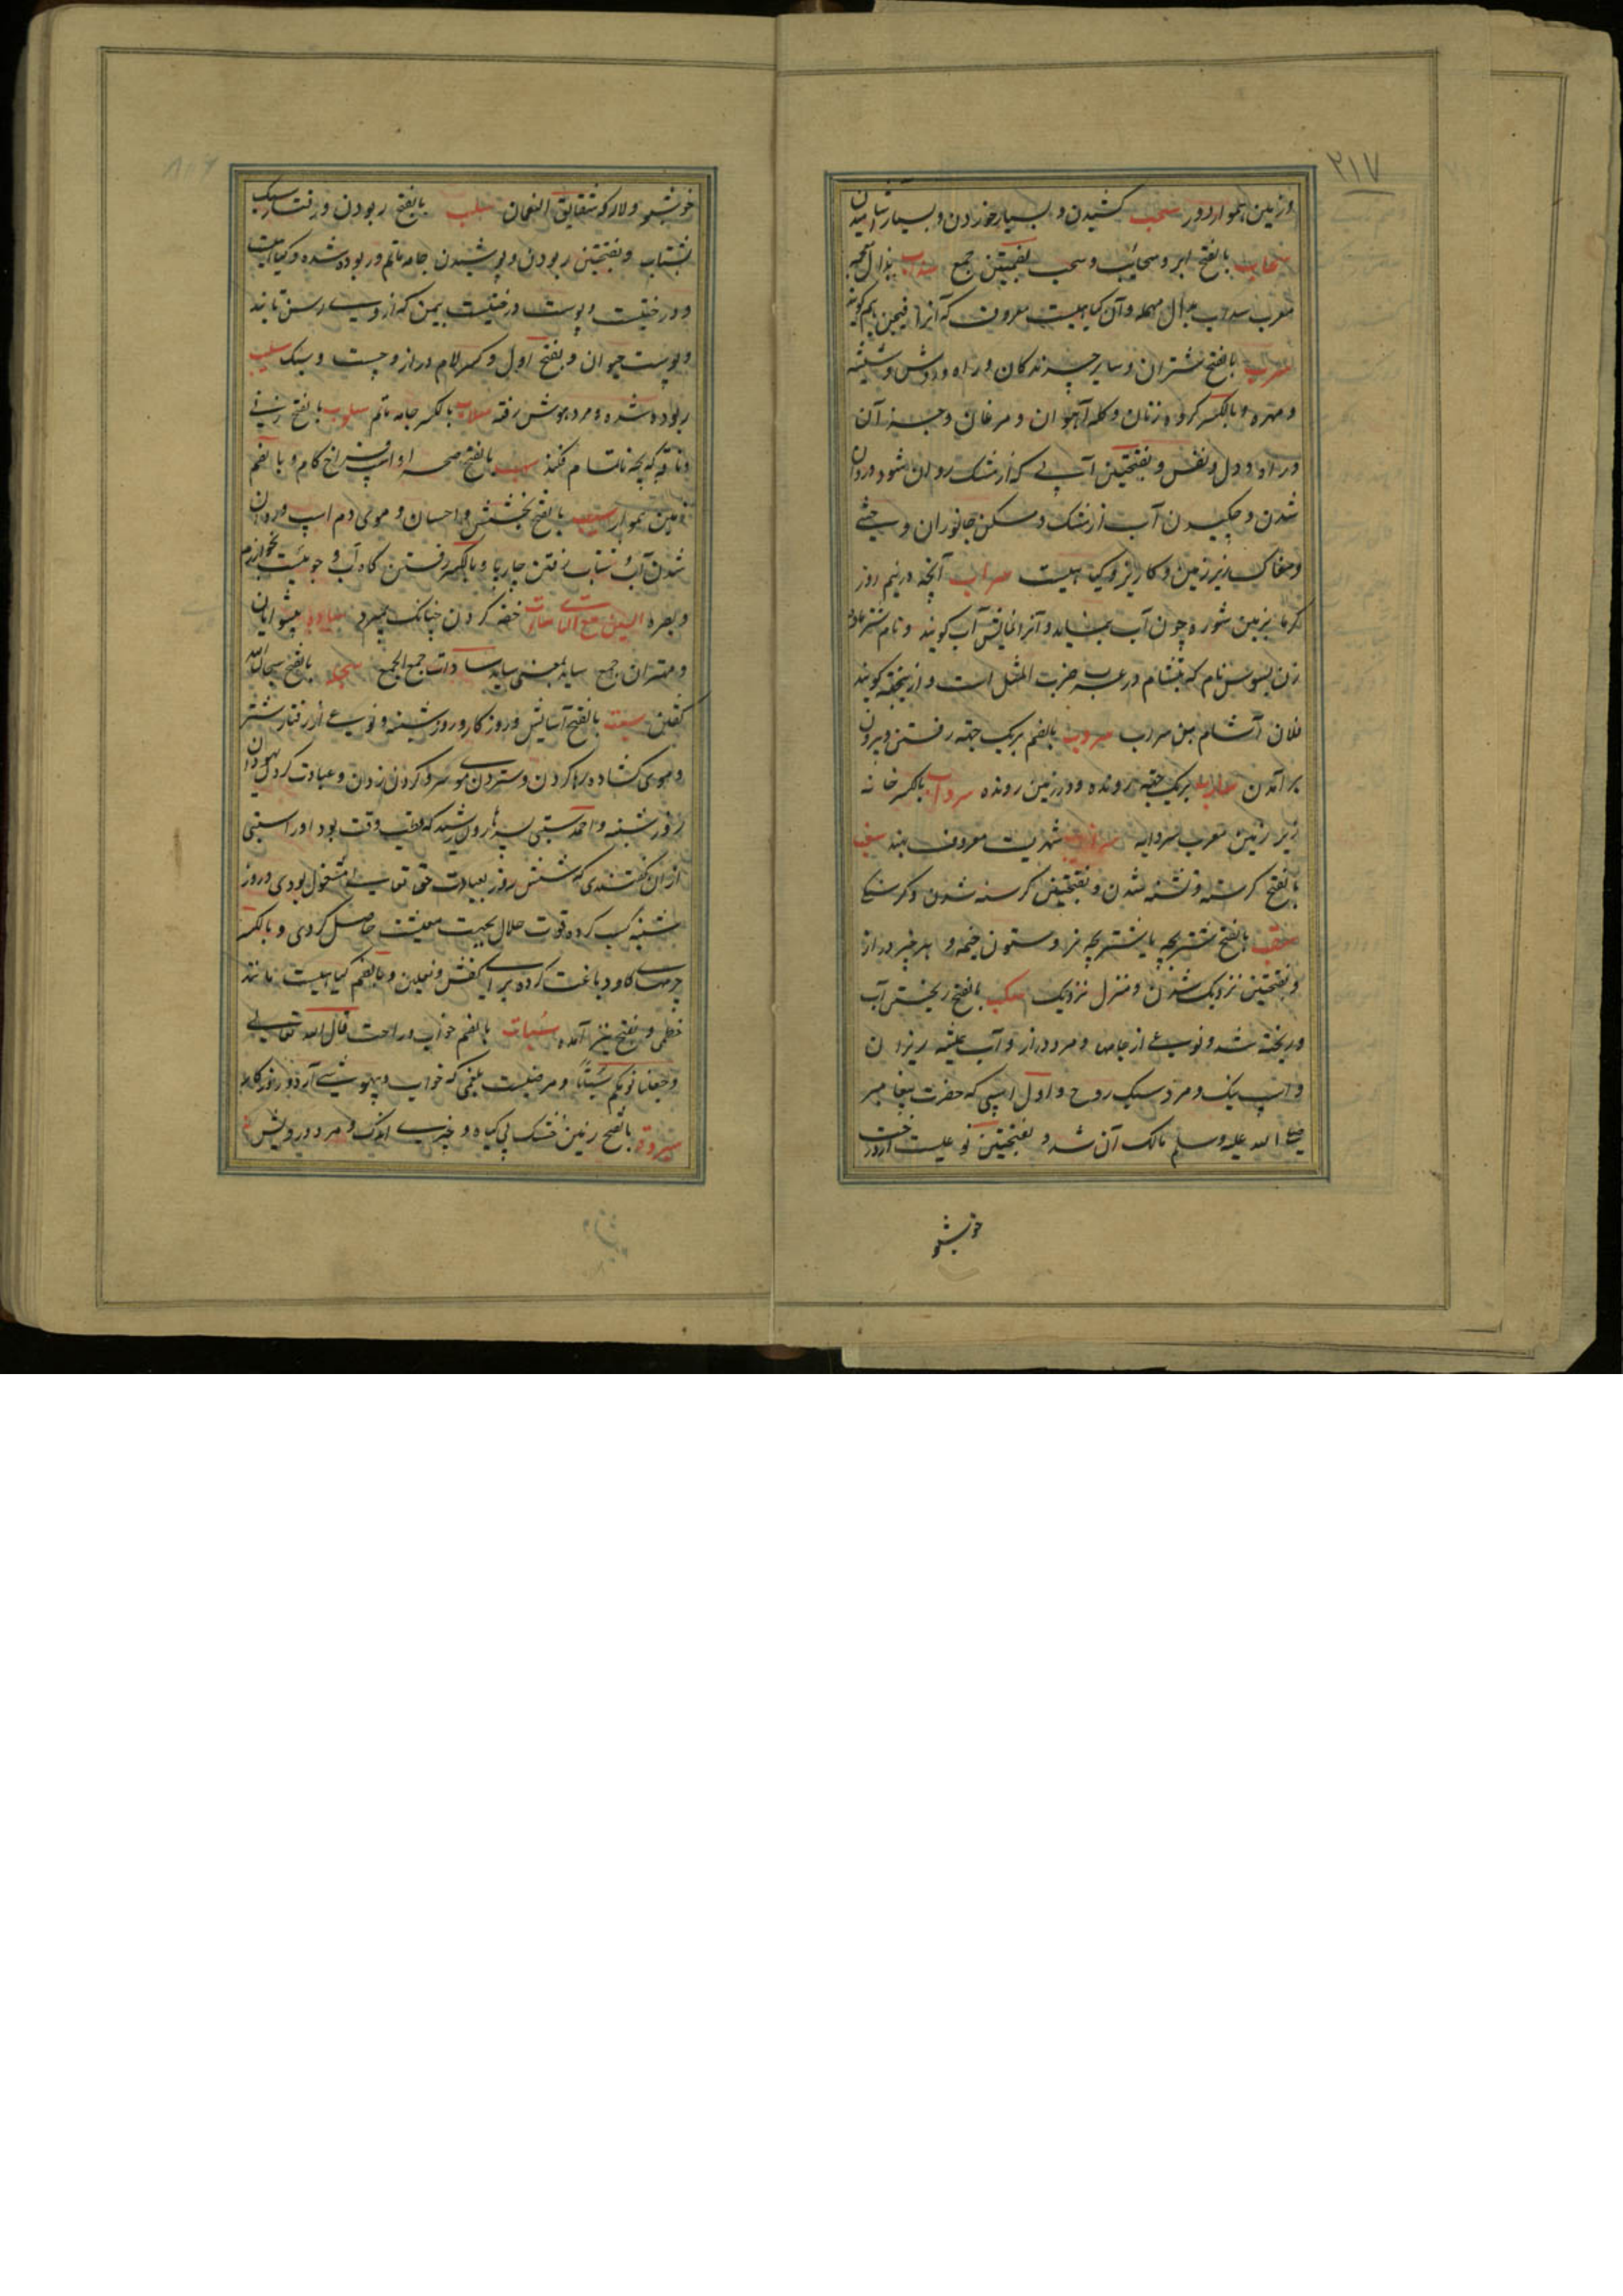 ۲۱۷
و زمین هموار دور سحب کشیدن و بسیار خوردن و بسیار آشامیدن
سحاب بالفتح ابر و سحایب و سحب بضمتین جمع سداب بذال معجمه
معرب سداب بدال مهمله و آن کیاهیست معروف که آنرا فیجن هم کویند
سرب بالفتح شتران و سایر چرندکان و راه و روش و شیشه
و مهره و بالکسر کروه زنان و کله آهوان و مرغان و جز آن
و راه و دل و نفس و بفتحتین آبی که از مشک روان شود و روان
شدن و چکیدن آب از مشک و مسکن جانوران وحشی
و مغاک زیر زمین و کاریز و کیاهیست سراب آنچه در نیم روز
کرما بزمین شوره چون آب نماید و آنرا نمایش آب کویند و نام شتر ماده
زن بسوس نام که بتشام در عرب ضرب المثل است و ازینجهة کویند
فلان آشام من سراب سروب بالضم بریک جهة رفتن و بیرون
برآمدن سارب بریک جهة رونده و در زمین رونده سرداب بالکسر خانه
زیر زمین معرب سردابه شهریست معروف بهند سغب
بالفتح کرسنه و تشنه شدن و بفتحتین کرسنه شدن و کرسنکی
سقب بالفتح شتر بچه یا شتر بچه نر و ستون خیمه و هر چیز دراز
و بفتحتین نزدیک شدن و منزل نزدیک سکب بالفتح ریختن آب
و ریخته شد و نوعی از جامها و مرد دراز و آب همیشه ریزان
و اسپ نیک و مرد سبک روح و اول اسپی که حضرت پیغامبر
صلی الله علیه وسلم مالک آن شد و بفتحتین نوعیست از درخت
خوشبو
خوشبو و لاله کوه شقایق النعمان سلب بالفتح ربودن و رفتار سبک
بشتاب و بفتحتین ربودن و پوشیدن جامه ماتم و ربوده شده و کیاهیست
و درختیست و پوست درختیست بیمن که از وی رسن تابند
و پوست حیوان و بفتح اول و کسر لام دراز و چست و سبک سلیب
ربوده شده و مرد هوش رفته سلاب بالکسر جامه ماتم سلوب بالفتح زنی
و ناقه که بچه ناتمام فکند سهب بالفتح صحرا و اسپ فراخ کام و بالضم
زمین هموار سیب بالفتح بخشش و احسان و موی دم اسپ و روان
شدن آب و شتاب رفتن چارپا و بالکسر رفتن کاه آب و جوئیست بخوارزم
و بصره السین مع التاء خفه کردن چنانکه بمیرد سادات پیشوایان
و مهتران جمع ساید بمعنی سید سادات جمع الجمع بالفتح سبحان الله
کفتن سبت بالفتح آسایش و روزکار و روز شنبه و نوعی از رفتار شتر
و موی کشاده رها کردن و ستردن موی سر و کردن زدن و عبادت کردن یهودان
روز شنبه و احمد سبتی پسر هارون رشید که قطب وقت بود او را سبتی
از آن کفتندی که شش روز بعبادت حق تعالی مشغول بودی و روز
شنبه کسب کرده قوت حلال بجهت معیشت حاصل کردی و بالکسر
چرمهای کاو دباغت کرده برای کفش و نعلین و بالضم کیاهیست مانند
خطمی و بفتح نیز آمده سبات بالضم خواب و راحت قال الله تعالی
وجعلنا نومکم سباتا و مرضیست بلغمی که خواب و بیهوشی آرد و روزکار
سبروت بالفتح زمین خشک بی کیاه و چیزی اندک و مرد درویش